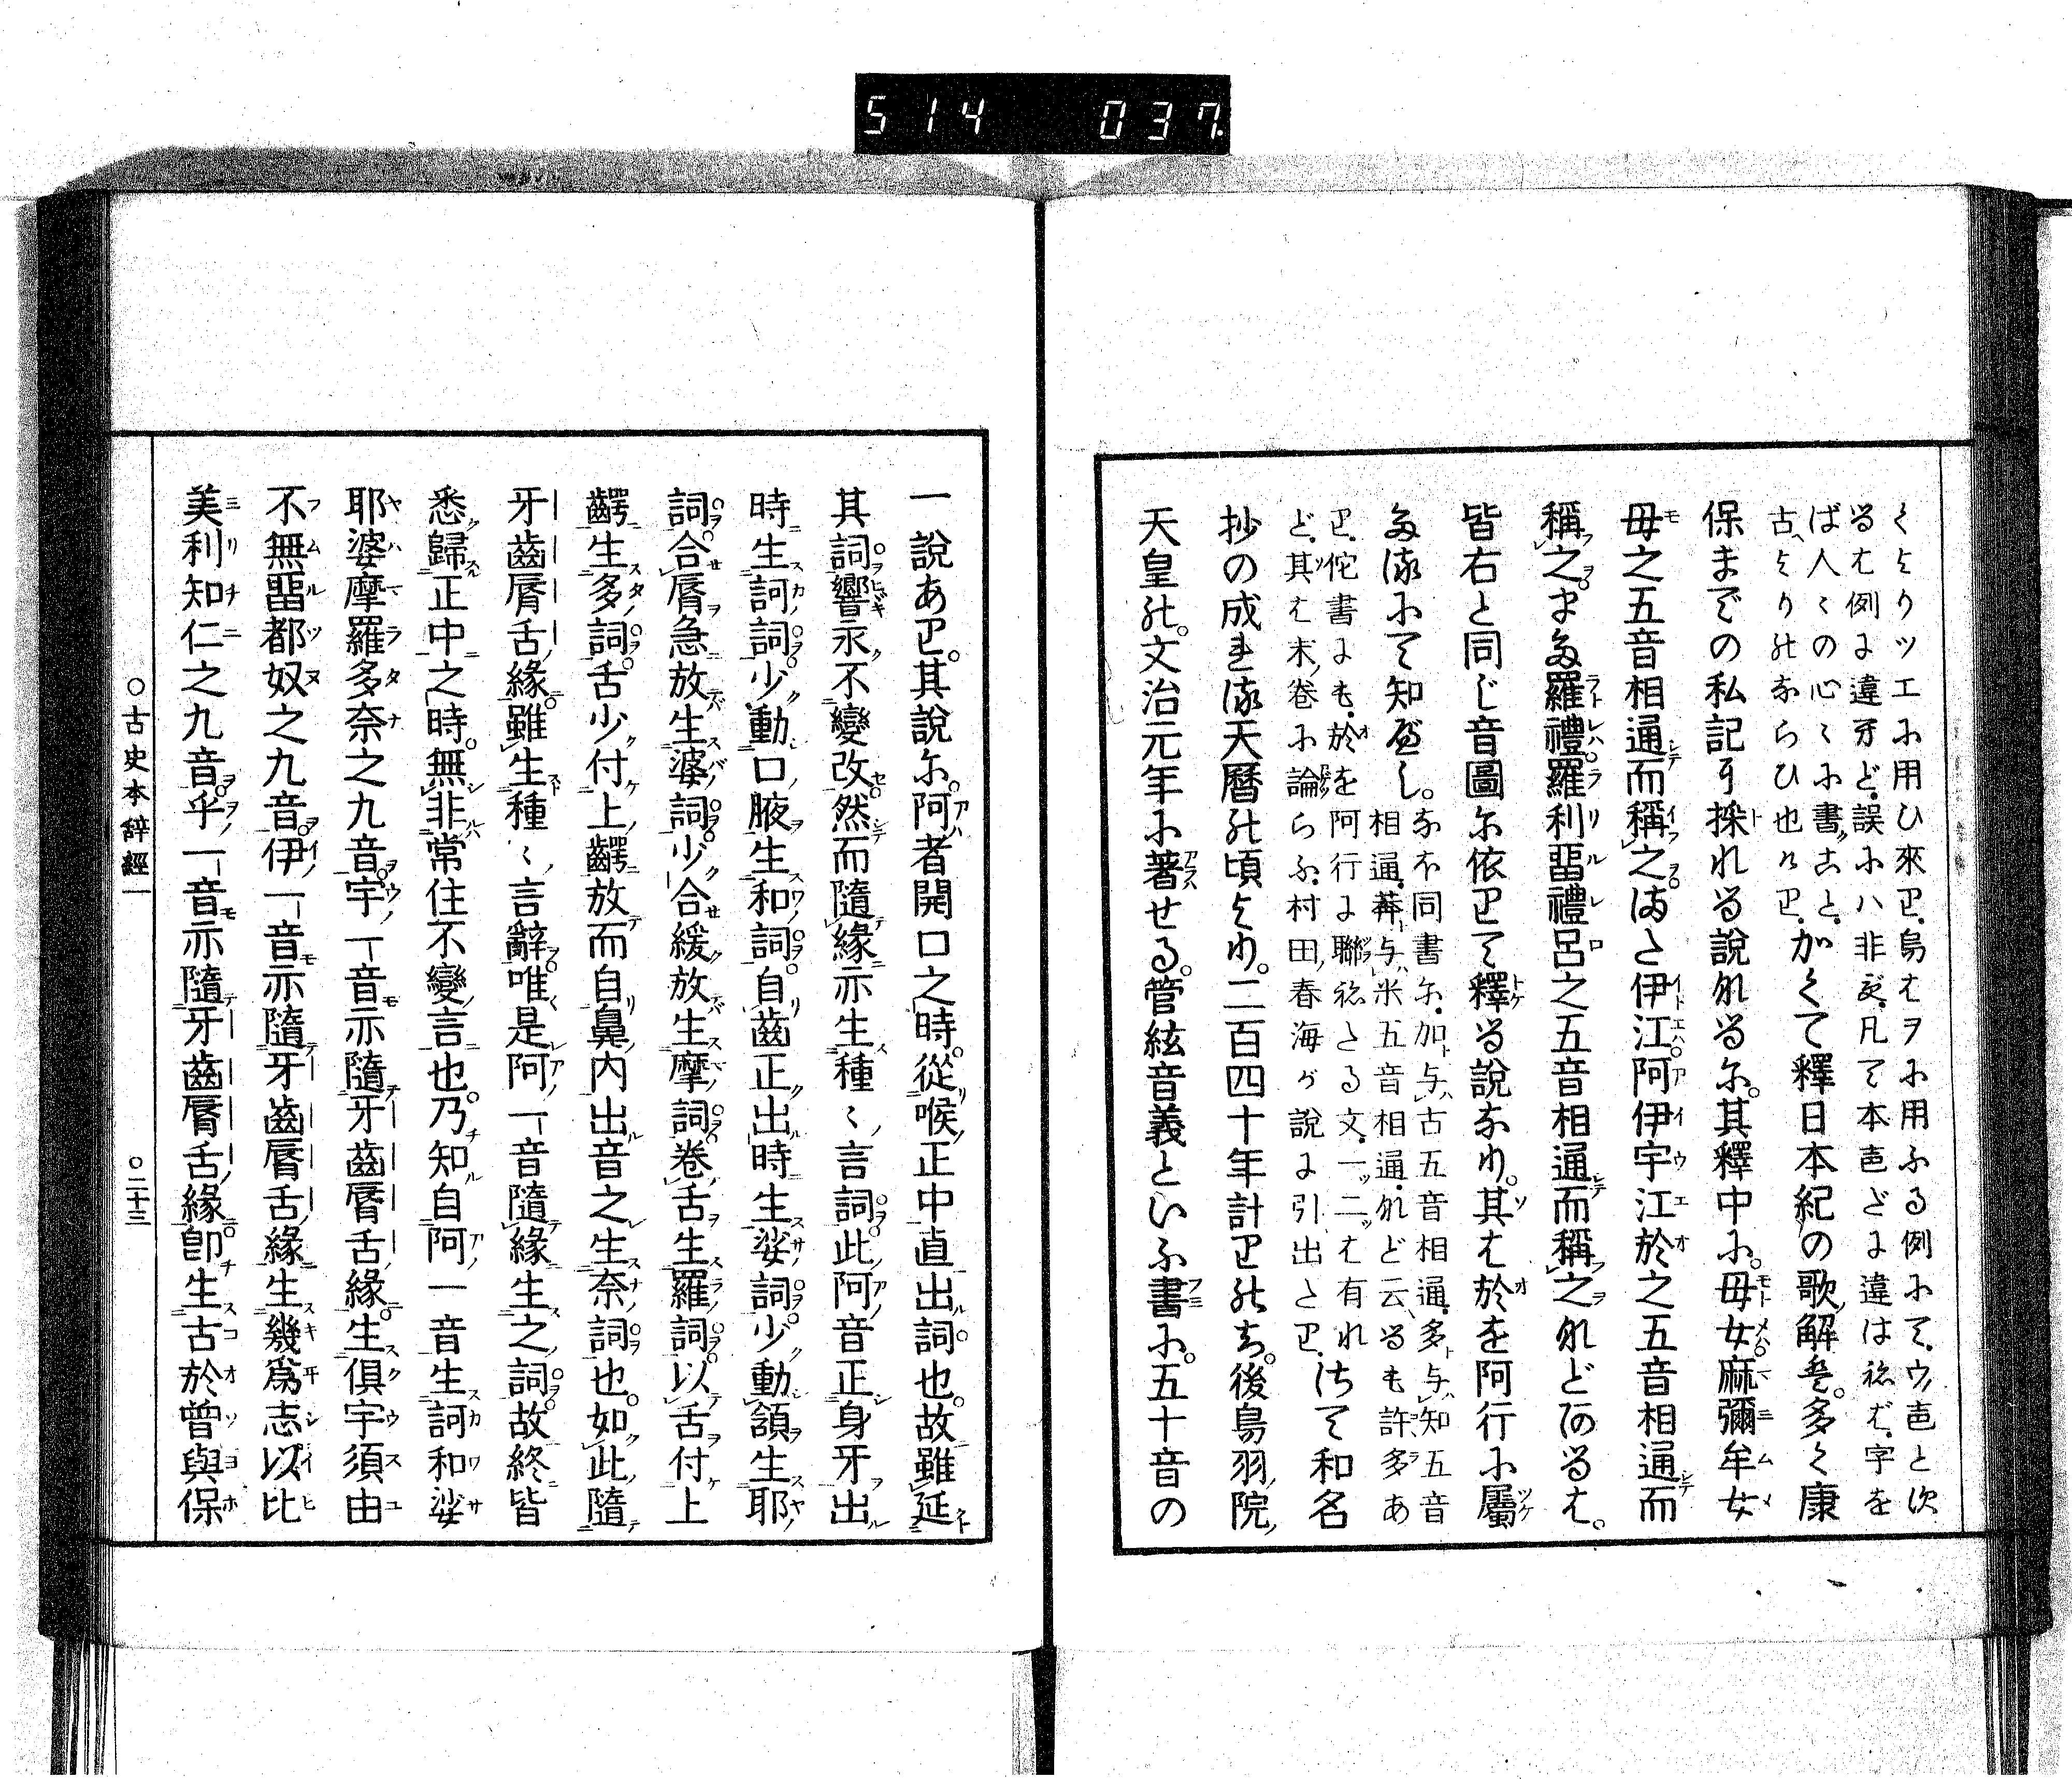 514 037
くよりツエに用ひ來り。烏はヲに用ふる例にて、ウノ音と次
るは例に違ひ〓ど、誤にハ非ず。凡て本音ざに違はねば、字を
ば人〻の心〻に書ること。と
古くよりのならひ也けり。かくて釋日本紀の歌ノ解に、多く康
保までの私記を採れる説なるに。其釋中に。毋女麻彌牟女
毋之五音相通而稱之。また伊江阿伊宇江於之五音相通而
稱之。また羅禮羅利畱禮呂之五音相通而稱之などあるは。
皆右と同じ音圖に依りて釋る説なり。其は於を阿行に屬
たるにて知べし。
なほ同書に。加与古五音相通。多与知五音
相通。〓与米五音相通。など云るも許多あ
り。佗書にも。於を阿行に聯ねたる文。一ッ二ッは有れ
ど。其は末ノ卷に論らふ。村田ノ春海が説に引出たり。
さて和名
抄の成れる天曆の頃より。二百四十年計りのち。後鳥羽ノ院ノ
天皇の。文治元年に著せる。管絃音義といふ書に。五十音の
一說あり。其說に。阿者開口之時。從喉正中直出詞也。故雖延
其詞響永不變改。然而隨緣亦生種〻言詞。此阿音正身牙出
時生訶詞。少動口腋生和詞。自齒正出時生娑詞。少動頷生耶
詞。合脣急放生婆詞。少合緩放生摩詞。卷舌生羅詞。以舌付上
齶生多詞。舌少付上齶放而自鼻內出音之生奈詞也。如此隨
牙齒脣舌緣。雖生種〻言辭。唯是阿一音隨緣生之詞。故終皆
悉歸正中之時。無非常住不變言也。乃知自阿一音生訶和娑
耶婆摩羅多奈之九音。宇一音亦隨牙齒脣舌緣。生俱宇須由
不無畱都奴之九音。伊一音亦隨牙齒脣舌緣生幾爲志以比
美利知仁之九音乎。一音亦隨牙齒脣舌緣。卽生古於曾與保
○古史本辭經一
○二十三